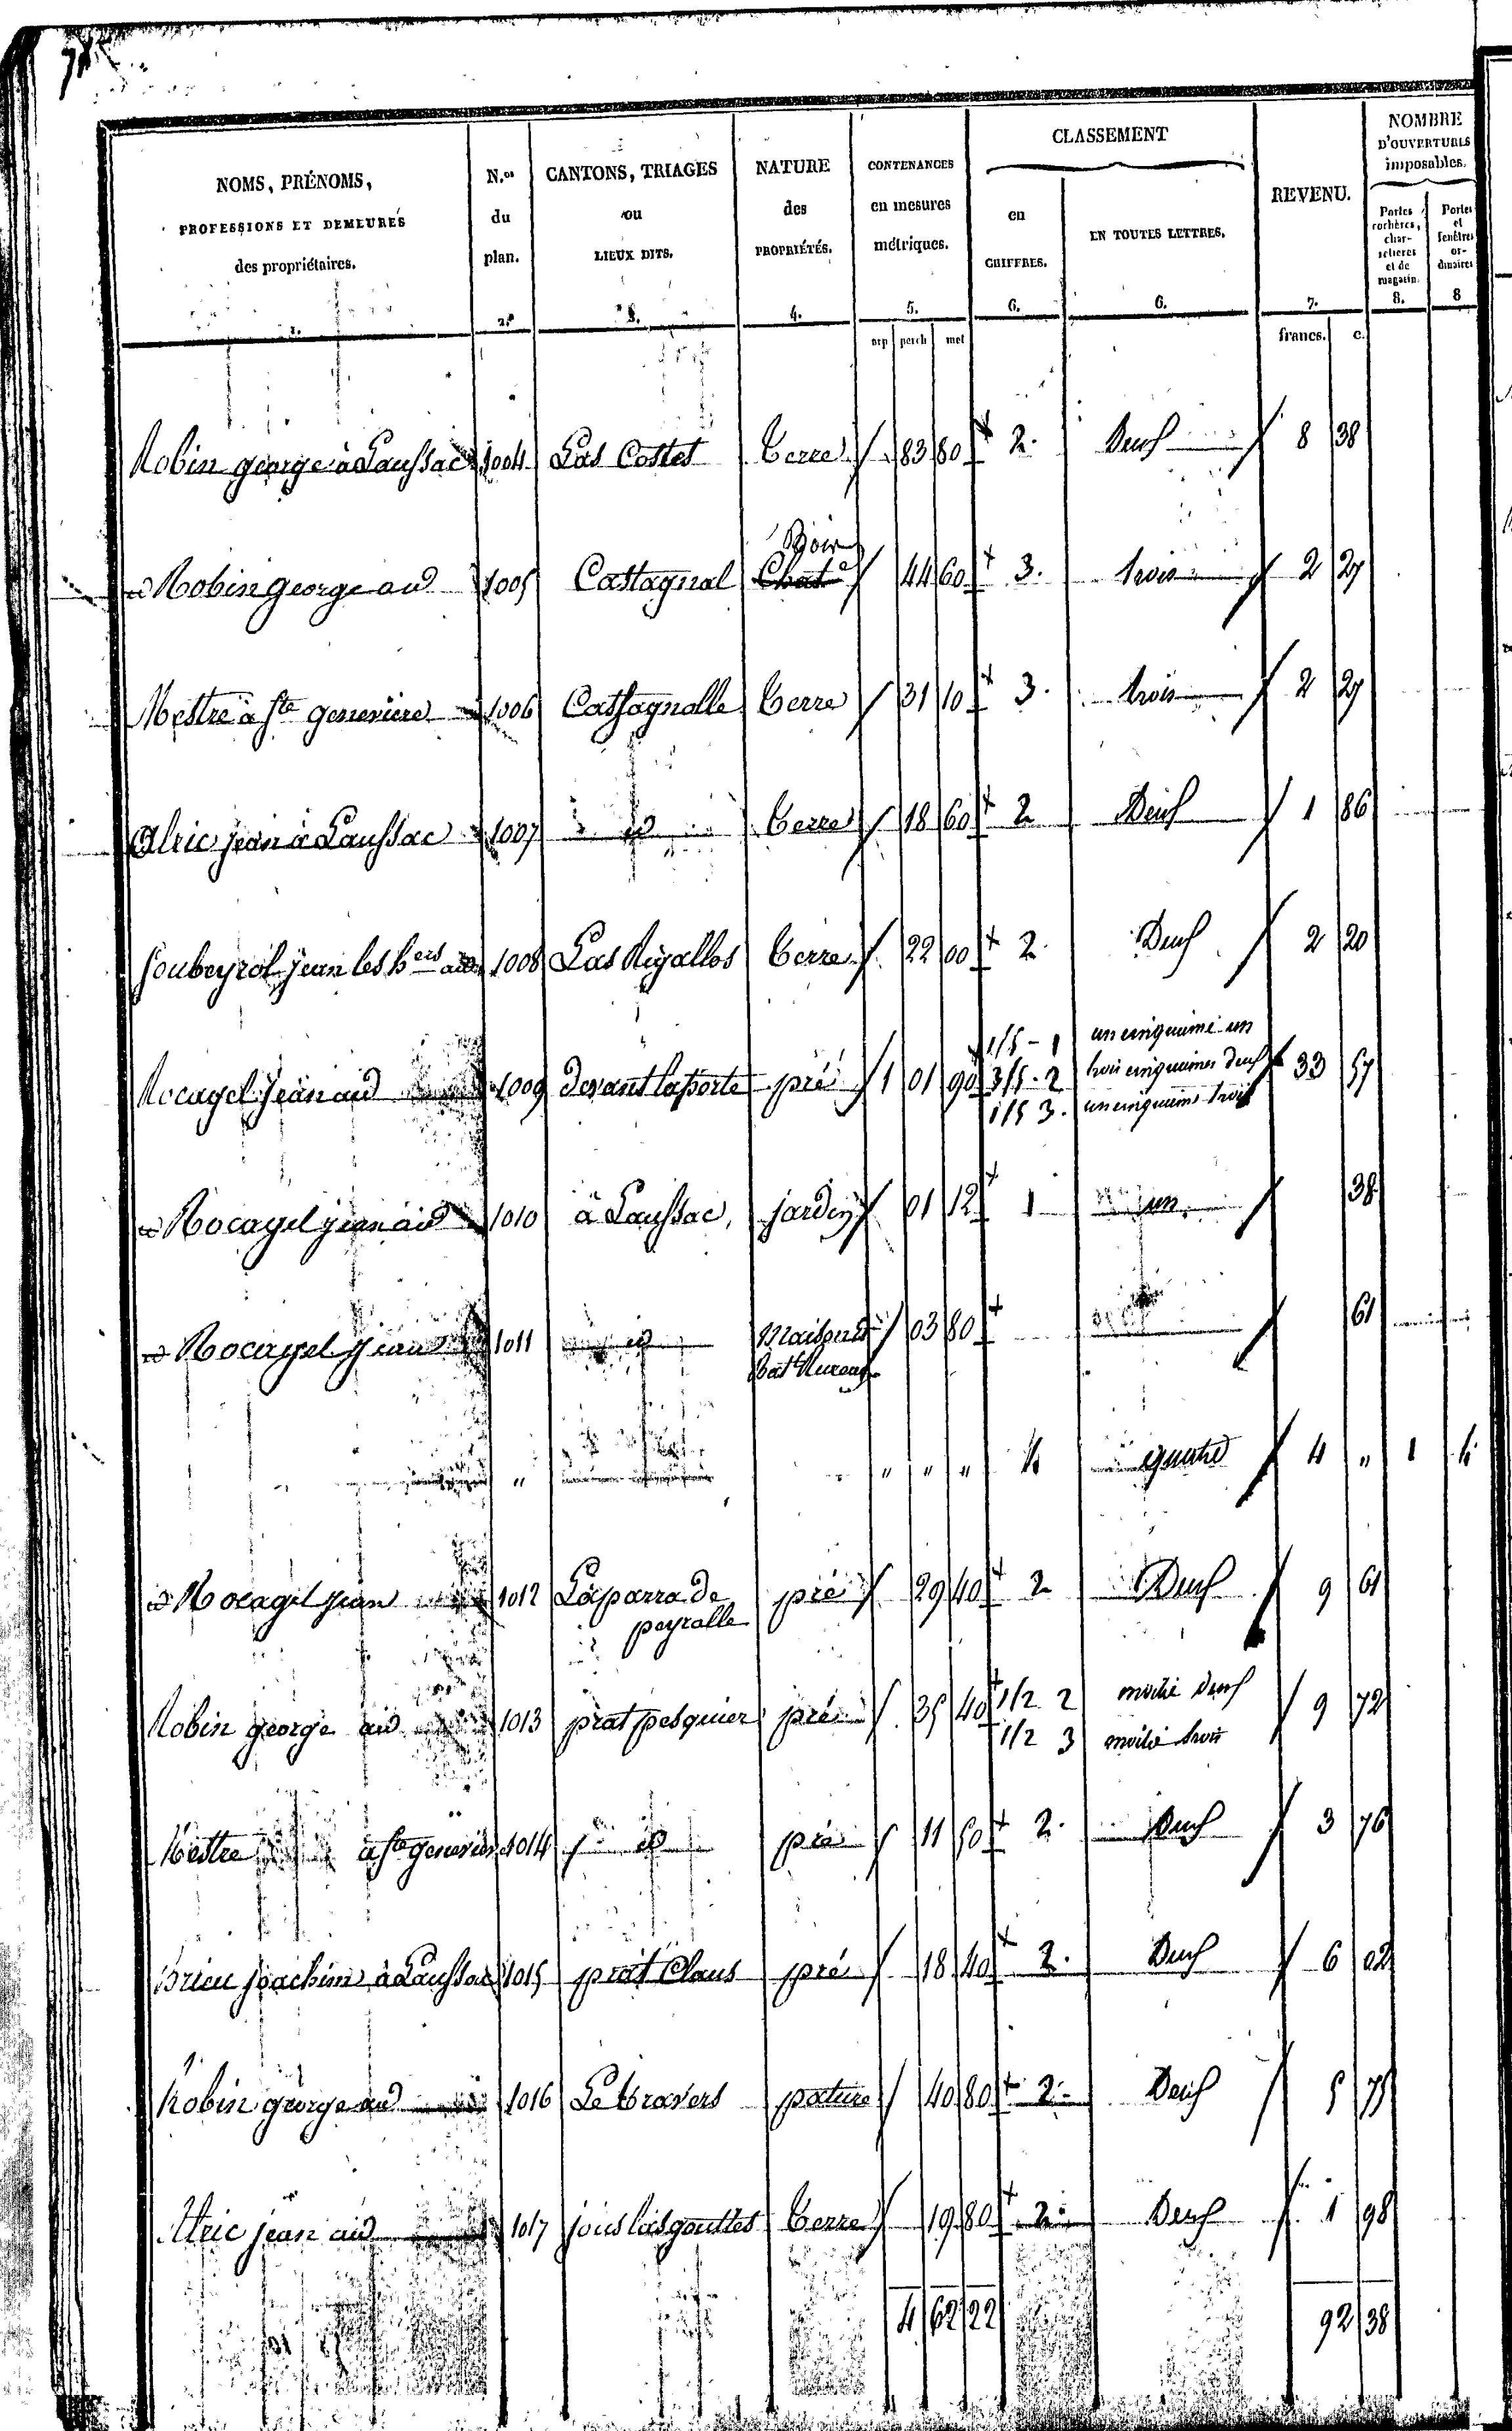 NOMS, PRÉNOMS, PROFESSIONS ET DEMEURES des propriétaires. 1.
N.os du plan. 2.
CANTONS, TRIAGES ou LIEUX DITS. 3.
NATURE des PROPRIÉTÉS. 4.
CONTENANCES en mesures métriques. 5.
CLASSEMENT
en CHIFFRES. 6.
EN TOUTES LETTRES. 6.
REVENU. 7.
NOMBRE D'OUVERTURES imposables.
Portes cochères, charretières et de magasin. 8.
Portes et fenêtres ordinaires 8
arp perch met francs. c.
Robin george à Laussac 1004 Las Costes Terre 83 80 2. Deux 8 38
id Robin george aud 1005 Castagnal Bois 44 60 3. trois 2 27
Mestre à Ste genevieve 1006 Cassagnolle Terre 31 10 3. trois 2 27
Alric jean à Laussac 1007 id Terre 18 60 2 Deux 1 86
Soubeyrol jean les hers aud 1008 Las Rigallos Terre 22 00 2. Deux 2 20
Rocagel Jean aud 1009 devant laporte pré 1 01 90 1/5 - 1 un cinquieme un 33 57
3/5 - 2 trois cinquiemes deux
1/5 3. un cinquieme trois
id Rocagel jean aud 1010 à Laussac jardin 01 12 1 un 38
id Rocagel Jean 1011 id Maison et 03 80 61
Bat Ruraux
" " " " 4 quatre 4 " 1 4
id Rocagel Jean 1012 Laparra de 29 40 2 Deux 9 61
peyralle pré
Robin george aud 1013 prat pesquier pré 35 40 1/2 2 moitié deux 9 72
1/2 3 moitié trois
Mestre à Ste genevieve 1014 id pré 11 50 2. Deux 3 76
Brieu Joachim à Laussac 1015 prat Claus pré 18 40 2. Deux 6 02
Robin george aud 1016 Le travers pature 40 80 2. Deux 5 75
Alric jean aud 1017 sous las gouttes Terre 19 80 2. Deux 1 98
4 62 22 92 38